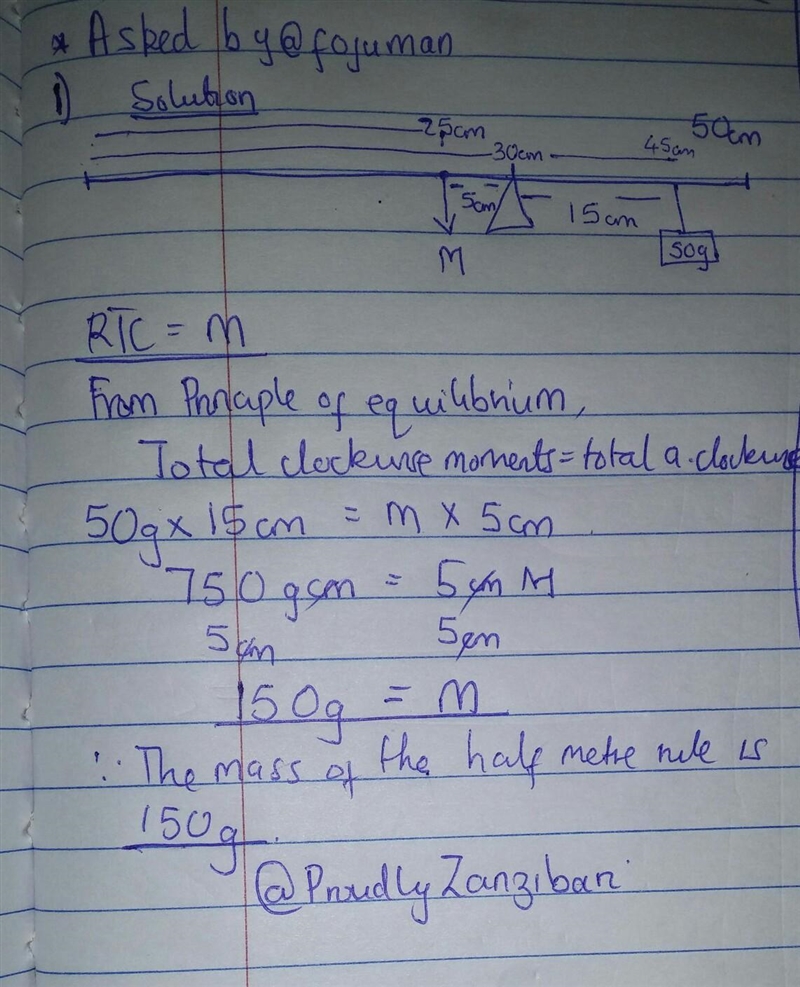 * Asked by @fojuman
1) Solution
25cm
50cm
30cm
45cm
5cm
15cm
M
50g
RTC = M
From Principle of equilibrium,
Total clockwise moments = total a.clockwise
50g x 15cm = m x 5cm
750 gcm = 5cm M
5cm 5cm
150g = m
∴ The mass of the half metre rule is
150g.
@ProudlyZanzibari